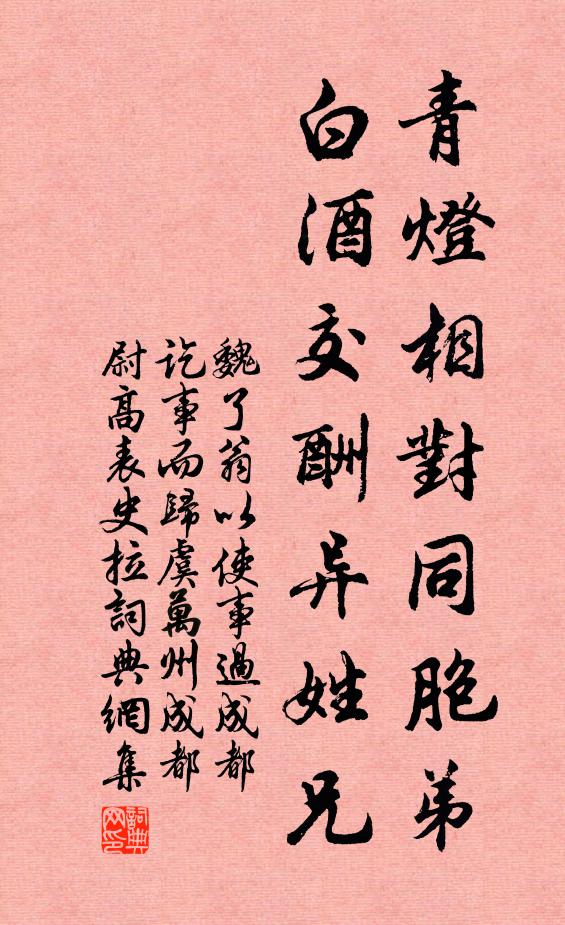 青燈相對同胞弟
白酒交酬异姓兄
魏了翁以使事過成都
訖事而歸虞萬州成都
尉高表史拉詞典網集
詞典网印